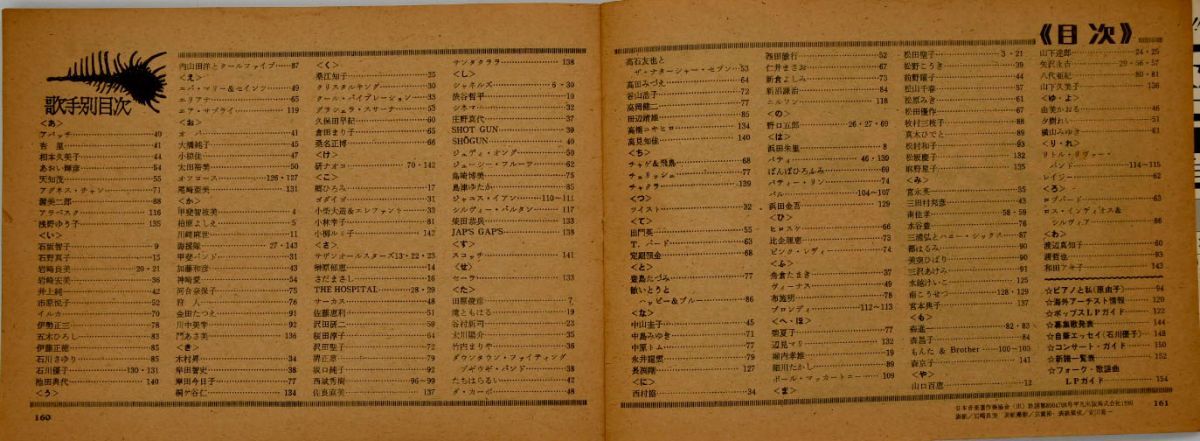 歌手別目次
<あ>
アパッチ 40
杏里 41
相本久美子 44
あおい輝彦 54
天知茂 55
アグネス・チャン 71
渥美二郎 88
アラベスク 116
浅野ゆう子 135
<い>
石坂智子 9
石野真子 15
岩崎良美 20・21
岩崎宏美 36
井上純 42
市原悦子 52
イルカ 70
伊勢正三 78
五木ひろし 83
伊藤正徳 85
石川さゆり 85
石川優子 130・131
池田典代 140
<う>
内山田洋とクールファイブ 87
<え>
エバ・マリー&セインツ 49
エリアナ 65
エア・サプライ 119
<お>
オーバー 41
大橋純子 45
小椋佳 47
太田裕美 50
オフコース 126・127
尾崎亜美 131
<か>
甲斐智枝美 4
柏原よしえ 5
川崎麻世 11
海援隊 27・143
甲斐バンド 31
加藤和彦 43
神崎愛 54
河合奈保子 75
狩人 76
金田たつえ 91
川中美幸 91
門あさ美 136
<き>
木村昇 34
岸田智史 38
岸田今日子 77
桐ケ谷仁 134
<く>
桑江知子 25
クリスタルキング 30
クール・バイブレーション 33
グラシェラ・スサーナ 53
久保田早紀 60
倉田まり子 65
桑名正博 66
<け>
研ナオコ 70・142
<こ>
郷ひろみ 17
ゴダイゴ 31
小柴大造&エレファント 33
小林幸子 81
小柳ルミ子 142
<さ>
サザンオールスターズ 13・22・23
榊原郁恵 14
さだまさし 16
THE HOSPITAL 28・29
サーカス 48
佐藤恵利 51
沢田研二 59
桜田淳子 64
沢田聖子 72
堺正章 79
坂口純子 92
西城秀樹 96〜99
佐良直美 137
サンタクララ 138
<し>
シャネルズ 6・39
渋谷哲平 10
シネマ 32
庄野真代 37
SHOT GUN 39
SHŌGUN 49
ジュディ・オング 50
ジューシー・フルーツ 62
島崎博美 75
島津ゆたか 85
ジャニス・イアン 110〜111
シルヴィー・バルタン 117
柴田恭兵 133
JAP'S GAP'S 139
<す>
スコッチ 141
<せ>
セーラ 133
<た>
田原俊彦 7
滝ともはる 19
谷村新司 23
太川陽介 35
竹内まりや 36
ダウンタウン・ファイティング
ブギウギ・バンド 38
たちはらるい 42
ダ・カーポ 48
160
《目次》
高石友也と
ザ・ナターシャー・セブン 53
高田みづえ 64
谷山浩子 72
高岡健二 77
田辺靖雄 89
高橋ユキヒロ 134
高見知佳 140
<ち>
チャゲ&飛鳥 68
チェリッシュ 77
チャクラ 139
<つ>
ツイスト 32
<て>
出門英 55
T.バード 63
定期預金 68
<と>
豊島たづみ 77
敏いとうと
ハッピー&ブルー 86
<な>
中山圭子 45
中島みゆき 71
中原トム 77
永井龍雲 79
長渕剛 127
<に>
西村協 34
西田敏行 52
仁井まさお 67
新倉よしみ 73
新沼謙治 84
ニルソン 118
<の>
野口五郎 26・27・69
<は>
浜田朱里 8
パティ 46・130
ばんばひろふみ 69
パティー・リン 74
バル 104〜107
浜田金吾 129
<ひ>
ヒロスケ 66
比企理恵 73
ピンク・レディ 74
<ふ>
布倉たまき 37
ヴィーナス 49
布施明 78
ブロンディ 112〜113
<へ・ほ>
弊夏子 77
辺見マリ 132
堀内孝雄 19
細川たかし 89
ポール・マッカートニー 109
<ま>
松田聖子 3・21
松野こうき 39
前野曜子 44
松山千春 57
松原みき 61
松田優作 67
牧村三枝子 88
真木ひでと 89
松村和子 93
松坂慶子 132
麻野星子 135
<み>
宮永英 35
三田村邦彦 43
南佳孝 58・59
水谷豊 76
三浦弘とハニー・シックス 87
都はるみ 90
美空ひばり 90
三沢あけみ 91
水越けいこ 125
南こうせつ 128・129
宮本典子 137
<も>
森進一 82・83
森昌子 84
もんた & Brother 100〜103
森京子 141
<や>
山口百恵 12
山下達郎 24・25
矢沢永吉 29・56・57
八代亜紀 80・81
山下久美子 136
<ゆ・よ>
由美かおる 46
夕樹れい 51
横山みゆき 61
<り・れ>
リトル・リヴァー・
バンド 114〜115
レイジー 62
<ろ>
ロブバード 63
ロス・インディオス&
シルヴィア 86
<わ>
渡辺真知子 60
渡哲也 93
和田アキ子 143
☆ピアノと私(原由子) 94
☆海外アーチスト情報 120
☆ポップスLPガイド 122
☆募集歌発表 144
☆自筆エッセイ(石川優子) 148
☆コンサート・ガイド 150
☆新譜一覧表 152
☆フォーク・歌謡曲
LPガイド 154
161